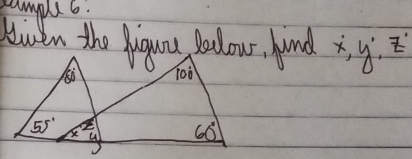 Example 6:
Given the figure below, find x°, y°, z°
60° 100°
55° x z y 60°